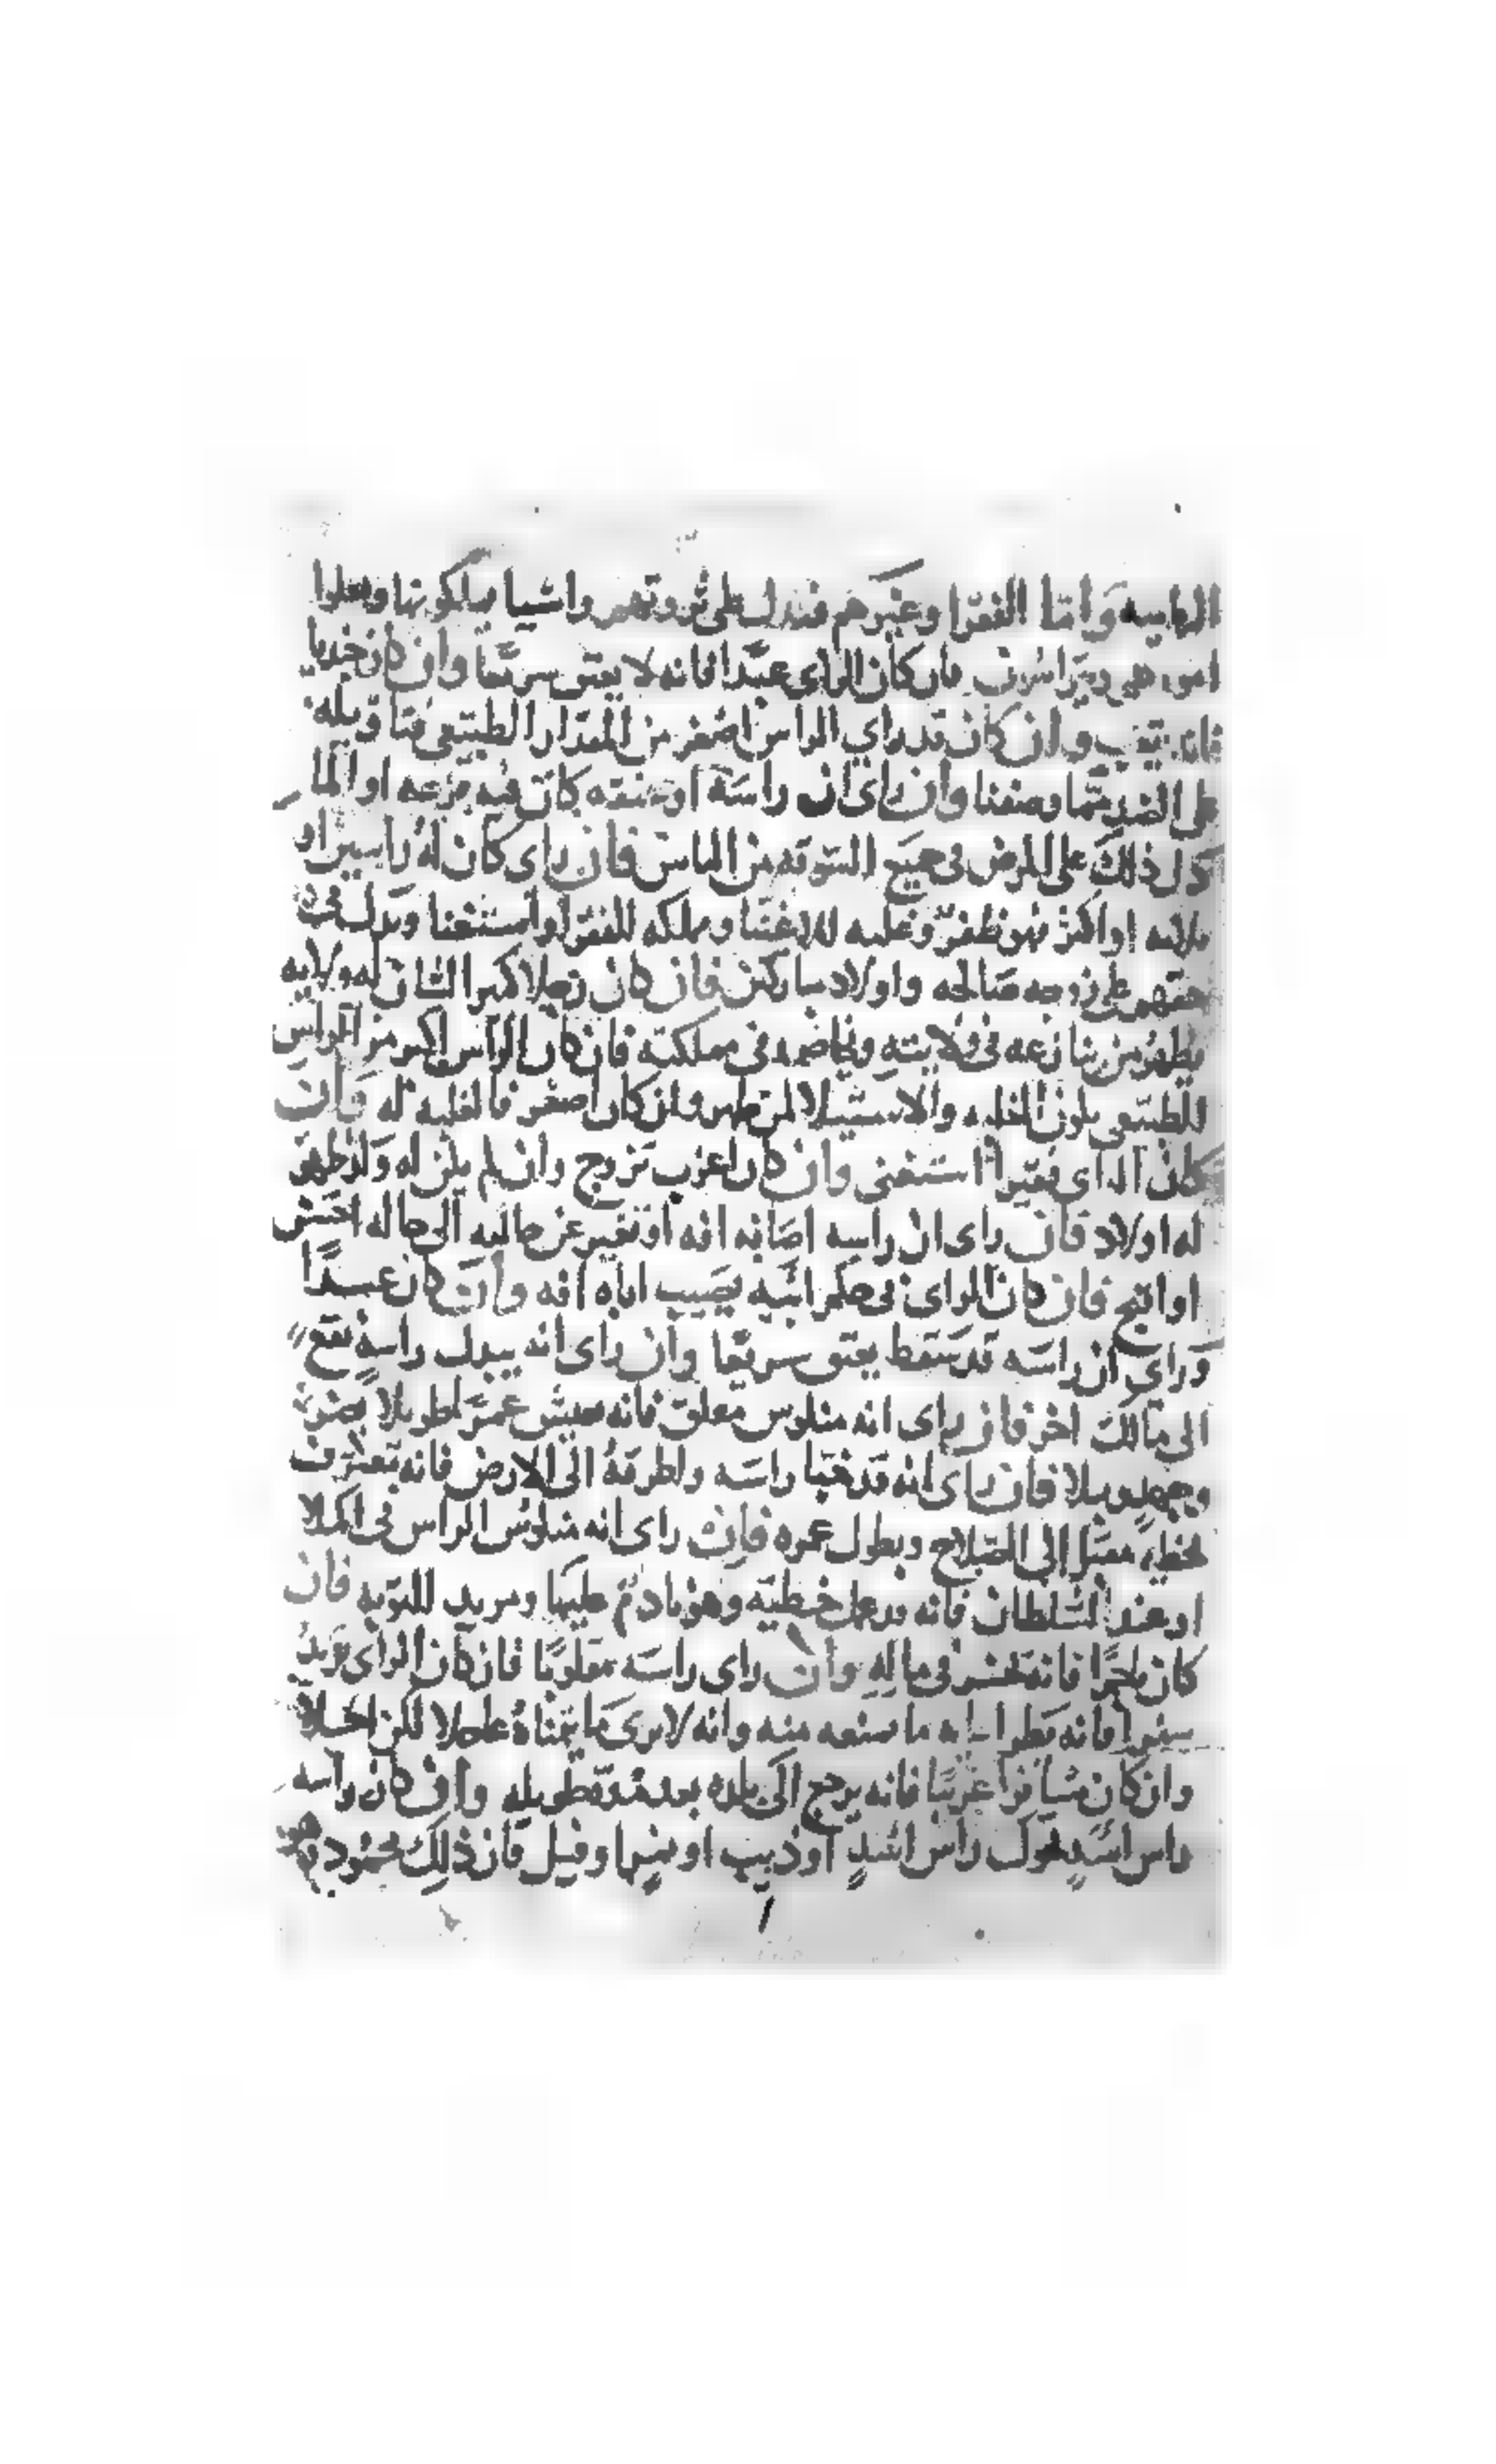 الرياسه وامّا الفقرا وغيرهم فتدل على ثروتهم واشيا يملكونها
فان كان الراي عبدا فانه لا يعتق سريعًا وان كان جنديا
فانه يتعب وان كان قد راي الراس اصغر من المقدار الطبيعي فتاويله
على الضد ممّا وصفنا وان راى ان راسه او عنقه كان فيه قرحه او الما
دل ذلك على المرض في جميع السوقه من الناس فان راى كان له راسين او
ثلاثه او اكثر فهو ظفر وغلبه للاغنيا ومملكه للفقرا واستغنا ويدل في
حقهم على زوجه صالحه واولاد مباركين فان كان رجلا كبير الشان له ولايه
يظهر من ينازعه في ولايته ويخاصمه في مملكته فان كان الراس اكبر من الراس
الطبيعي يكون الغلبه والاستيلا لمن ظهر وان كان اصغر فالغلبه له وان
كان الراى فقيراً استغنى وان كان اعزب تزوج وان لم يكن له ولد ظهر
له اولاد فان راى ان راسه اصابه افه او تغير عن حالته الى حاله اخس
او اقبح فان كان الراى في حكم ابيه يصيب اباه افه وان كان عبدًا
وراى ان راسه قد سقط يعتق سريعًا وان راى انه يبدل راسه يقع
الى مالك اخر فان راى انه منكوس معلق فانه يعيش عمرًا طويلا بضر
وجهد وبلا فان راى انه قد خبا راسه واطرقه الى الارض فانه يعترف
بخطيه معبرا الى الصلاح وبطول عمره فان راى انه منكوس الراس في الملا
او عند السلطان فانه قد عمل خطيه وهو نادم عليها ومريد للتوبه فان
كان تاجرًا فانه يخسر في ماله وان راى راسه مقلوبًا فان كان الراى يريد
سفرا فانه يطرا عليه ما يمنعه منه وانه لا يرى ما يتمناه عاجلا لكن اجلا
وان كان مسافرا غريبًا فانه يرجع الى بلده بعد مدة طويله وان كان راسه
راس اسد تحول راس اسد او ذيب او نمر او فيل فان ذلك محمود